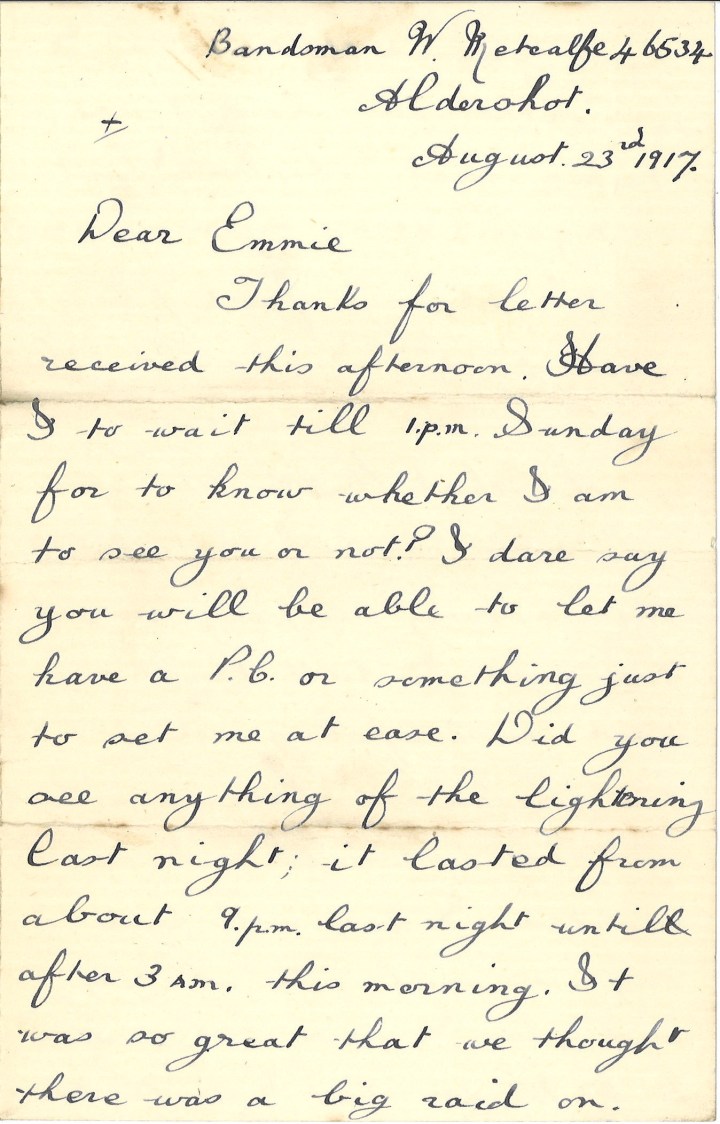 Bandsman W. Metcalfe 46534
Aldershot.
+
August. 23rd 1917.
Dear Emmie
Thanks for letter
received this afternoon. Have
I to wait till 1.p.m. Sunday
for to know whether I am
to see you or not!? I dare say
you will be able to let me
have a P.C. or something just
to set me at ease. Did you
see anything of the lightning
last night; it lasted from
about 9.p.m. last night untill
after 3 Am. this morning. It
was so great that we thought
there was a big raid on.